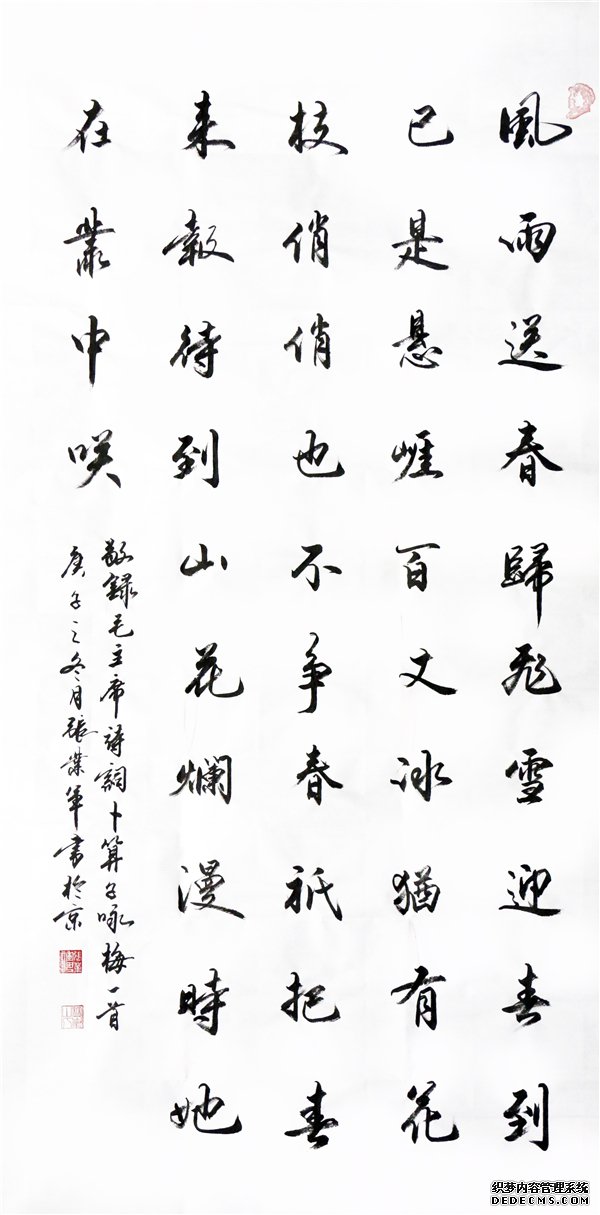 風雨送春歸飛雪迎春到
已是悬崕百丈冰猶有花
枝俏俏也不争春祇把春
来報待到山花爛漫時她
在叢中咲
敬録毛主席詩詞卜算子咏梅一首
庚子之冬月張業軍書於京
织梦内容管理系统
DEDECMS.COM